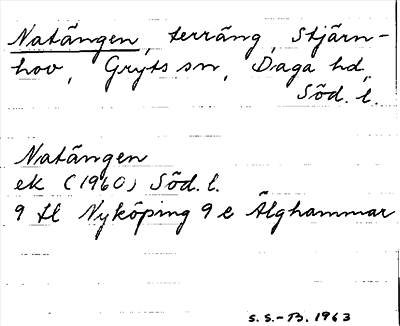 Natängen, terräng, Stjärn-
hov, Gryts sn, Daga hd,
Söd. l.
Natängen
ek (1960) Söd. l.
9 H Nyköping 9 e Älghammar
S.S.-B. 1963